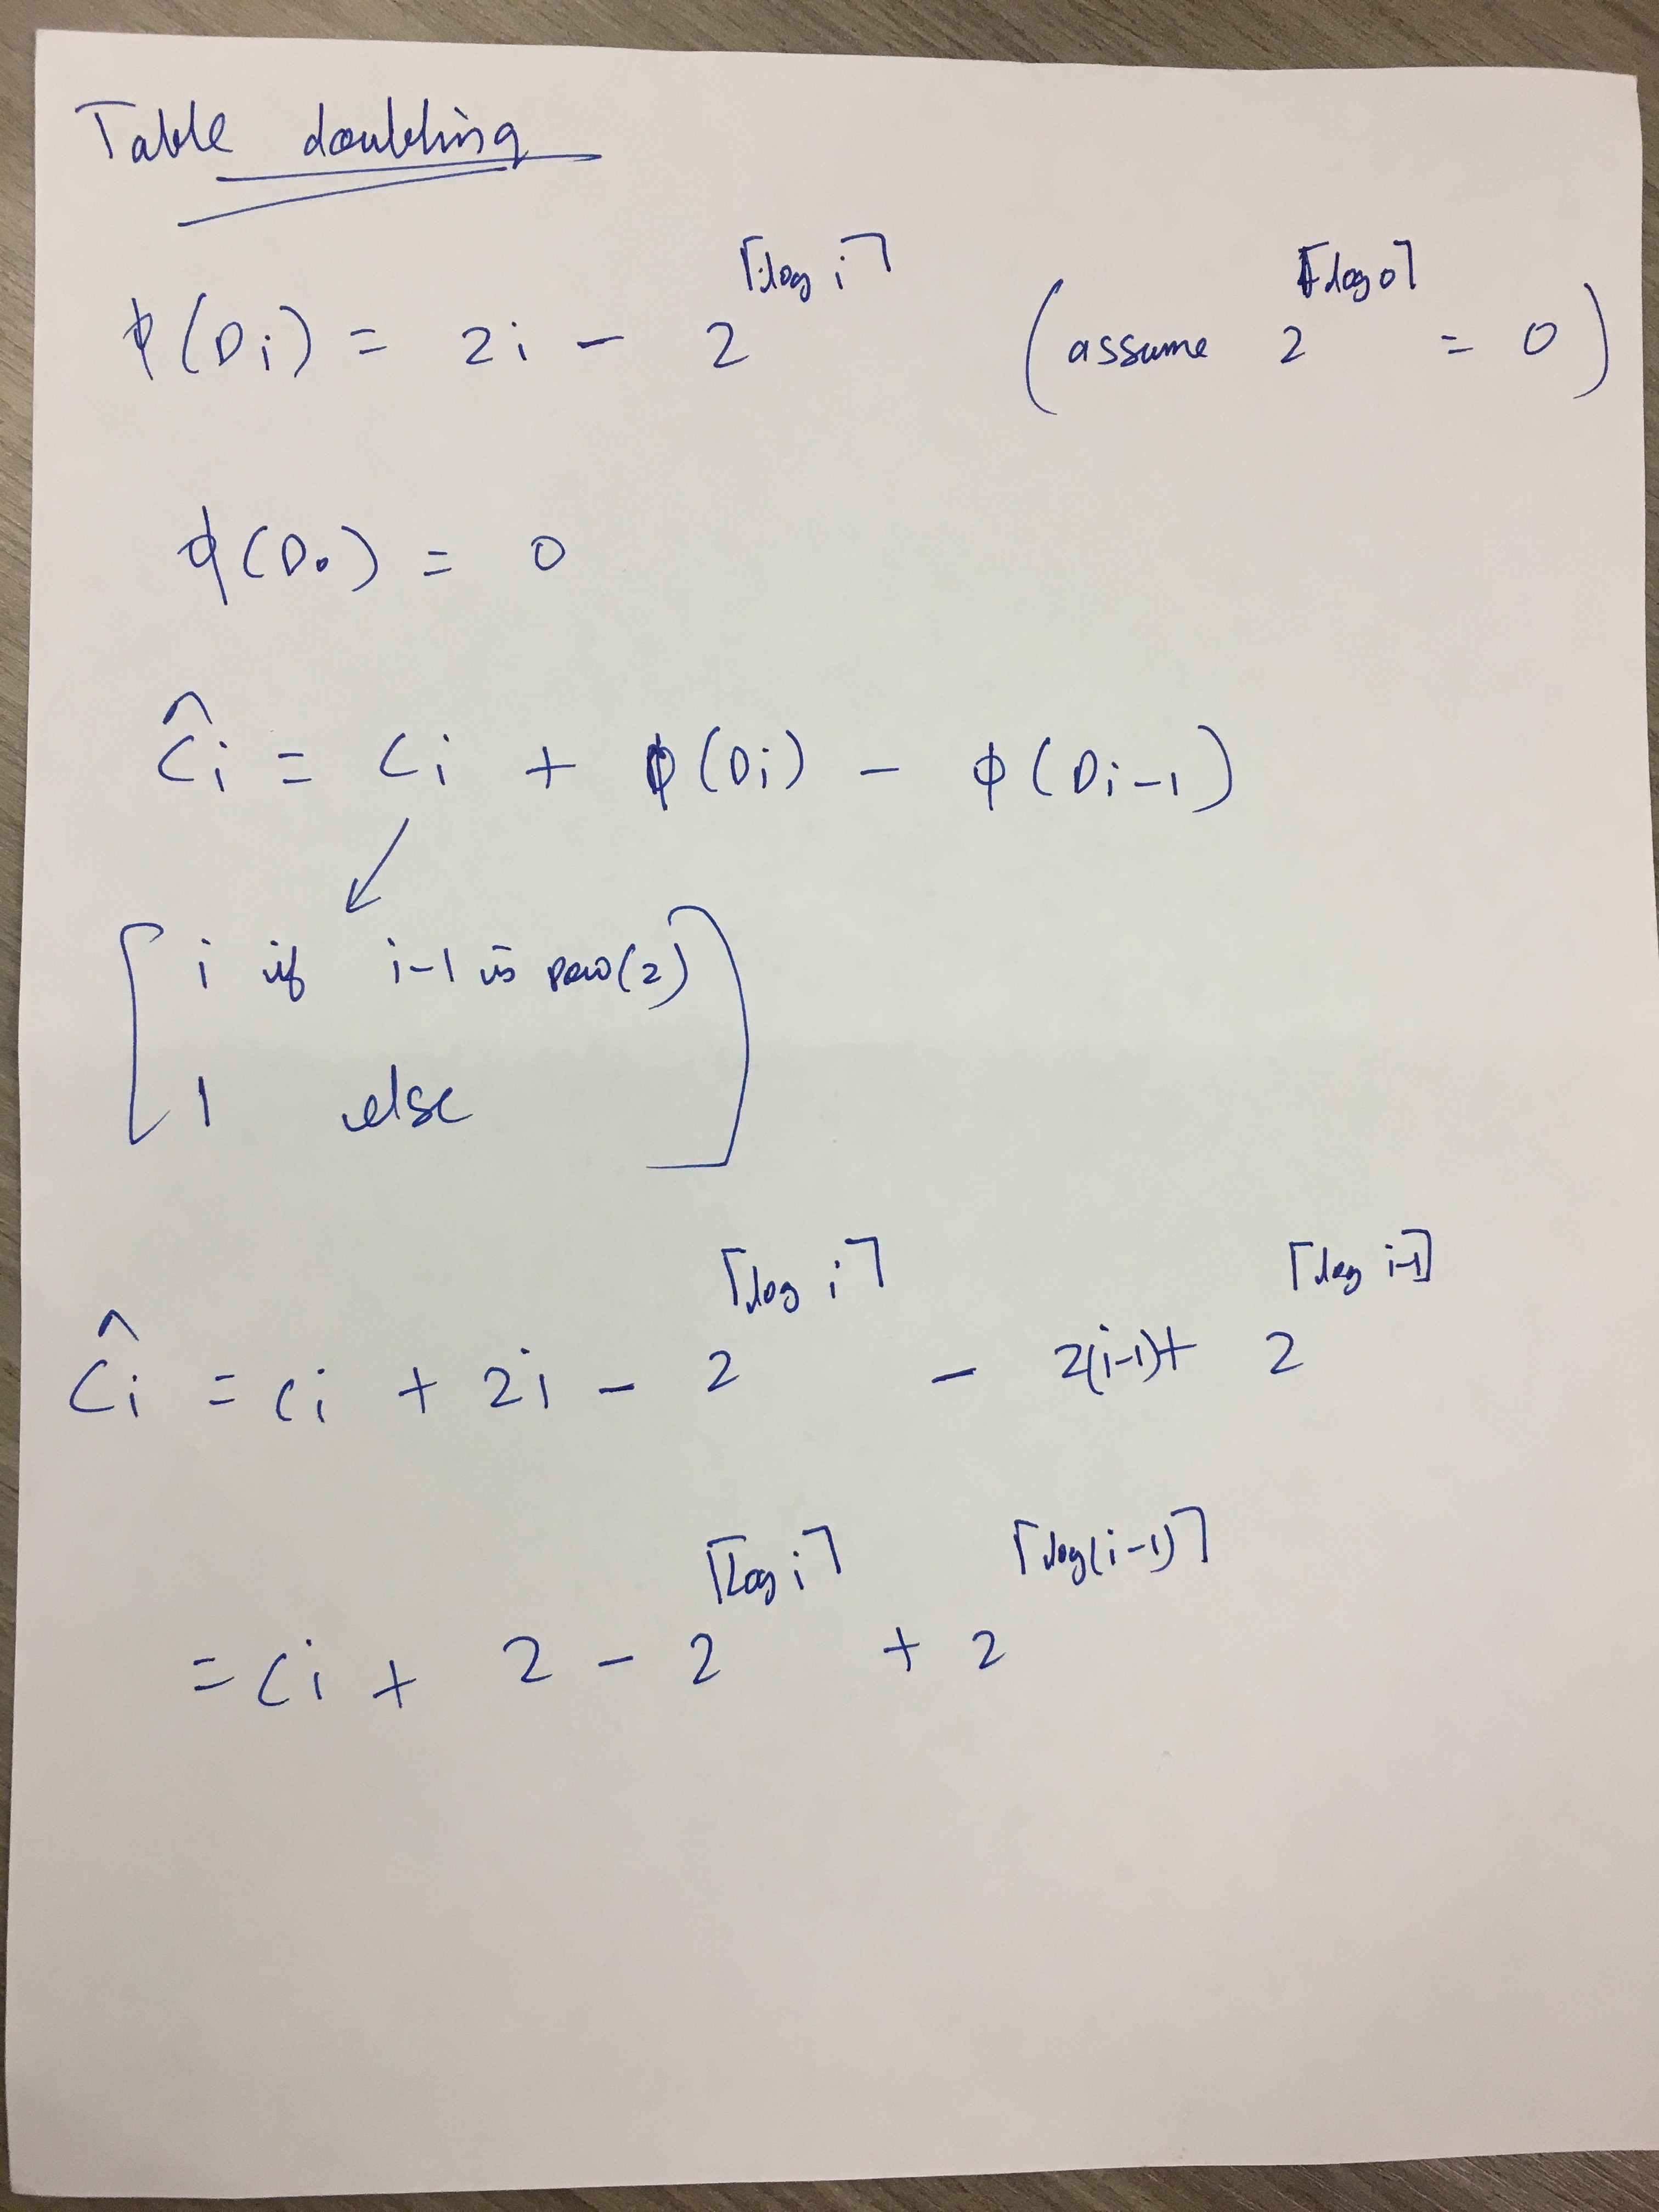 Table doubling
ϕ(Di) = 2i − 2^⌈log i⌉ (assume 2^⌈log 0⌉ = 0)
ϕ(D0) = 0
Ĉi = Ci + ϕ(Di) − ϕ(Di−1)
i if i−1 is pow(2)
1 else
Ĉi = Ci + 2i − 2^⌈log i⌉ − 2(i−1) + 2^⌈log i−1⌉
= Ci + 2 − 2^⌈log i⌉ + 2^⌈log(i−1)⌉